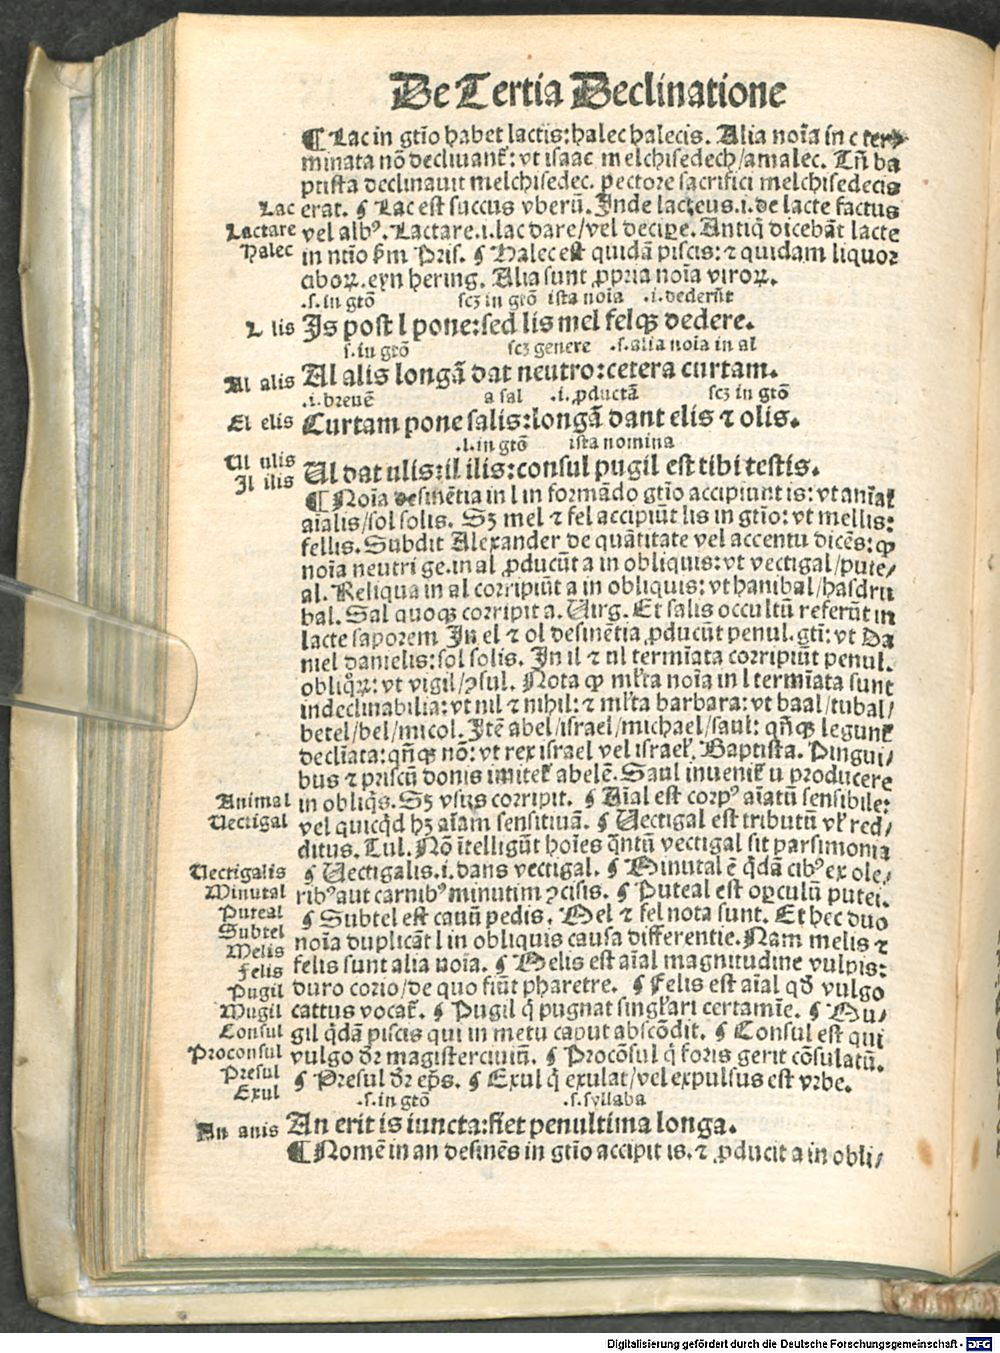 De Tertia Declinatione
¶ Lac in gtio̅ habet lactis: halec halecis. Alia noi̅a in c ter⸗
minata no̅ declinant̅: vt isaac melchisedech/amalec. Tn̅ ba
ptista declinauit melchisedec. pectore sacrifici melchisedecis
Lac erat. ¶ Lac est succus vberu̅. Inde lacteus.i. de lacte factus
Lactare vel albꝰ. Lactare.i. lac dare/vel decipe̅. Antiq̅ diceba̅t lacte
Halec in ntio̅ ẜm Pris. ¶ Halec est quida̅ piscis: ⁊ quidam liquor
ciboꝝ. eyn hering. Alia sunt ꝓpria noi̅a viroꝝ.
.s. in gto̅ scꝫ in gto̅ ista noi̅a .i. dederu̅t
L lis Is post l pone: sed lis mel felqꝫ dedere.
s. in gto̅ scꝫ genere .s. alia noi̅a in al
Al alis Al alis longa̅ dat neutro: cetera curtam.
.i. breue̅ a sal .i. ꝓducta̅ scꝫ in gto̅
El elis Curtam pone salis: longa̅ dant elis ⁊ olis.
.s. in gto̅ ista nomina
Ul ulis
Il ilis Ul dat ulis: il ilis: consul pugil est tibi testis.
¶ Noi̅a desine̅tia in l in forma̅do gtio̅ accipiunt is: vt ani̅al
ai̅alis/sol solis. Sꝫ mel ⁊ fel accipiu̅t lis in gtio̅: vt mellis:
fellis. Subdit Alexander de qua̅titate vel accentu dice̅s: ꝙ
noi̅a neutri ge. in al ꝓducu̅t a in obliquis: vt vectigal/pute⸗
al. Reliqua in al corripiu̅t a in obliquis: vt hanibal/hasdru
bal. Sal quoqꝫ corripit a. Uirg. Et salis occultu̅ referu̅t in
lacte saporem In el ⁊ ol desine̅tia ꝓducu̅t penul. gti̅: vt Da
niel danielis: sol solis. In il ⁊ ul termi̅ata corripiu̅t penul.
obliq̅ꝝ: vt vigil/ꝯsul. Nota ꝙ ml̅ta noi̅a in l termi̅ata sunt
indeclinabilia: vt nil ⁊ nihil: ⁊ ml̅ta barbara: vt baal/tubal/
betel/bel/micol. Ite̅ abel/israel/michael/saul: qn̅qꝫ legunt̅
decli̅ata: qn̅qꝫ no̅: vt rex israel vel israel̅. Baptista. Pingui⸗
bus ⁊ priscu̅ donis imitet̅ abele̅. Saul inuenit̅ u producere
Animal in obliq̅s. Sꝫ vsus corripit. ¶ Ai̅al est corpꝰ ai̅atu̅ sensibile:
Uectigal vel quicq̅d hꝫ ai̅am sensitiua̅. ¶ Uectigal est tributu̅ vl̅ red⸗
ditus. Tul. No̅ i̅telligu̅t hoi̅es q̅ntu̅ vectigal sit parsimonia
Uectigalis ¶ Uectigalis.i. dans vectigal. ¶ Minutal e̅ q̅da̅ cibꝰ ex ole⸗
Minutal ribꝰ aut carnibꝰ minutim ꝯcisis. ¶ Puteal est oꝑculu̅ putei.
Puteal
Subtel ¶ Subtel est cauu̅ pedis. Mel ⁊ fel nota sunt. Et hec duo
Melis noi̅a duplica̅t l in obliquis causa differentie. Nam melis ⁊
Felis felis sunt alia noi̅a. ¶ Melis est ai̅al magnitudine vulpis:
Pugil duro corio/de quo fiu̅t pharetre. ¶ Felis est ai̅al qd̅ vulgo
Mugil cattus vocat̅. ¶ Pugil q̅ pugnat singl̅ari certami̅e. ¶ Mu⸗
Consul gil q̅da̅ piscis qui in metu caput absco̅dit. ¶ Consul est qui
Proconsul vulgo dr̅ magister ciuiu̅. ¶ Proco̅sul q̅ foris gerit co̅sulatu̅.
Presul
Exul ¶ Presul dr̅ ep̅s. ¶ Exul q̅ exulat/vel expulsus est vrbe.
.s. in gto̅ .s. syllaba
An anis An erit is iuncta: fiet penultima longa.
¶ Nome̅ in an desine̅s in gtio̅ accipit is. ⁊ ꝓducit a in obli⸗
Digitalisierung gefördert durch die Deutsche Forschungsgemeinschaft - DFG